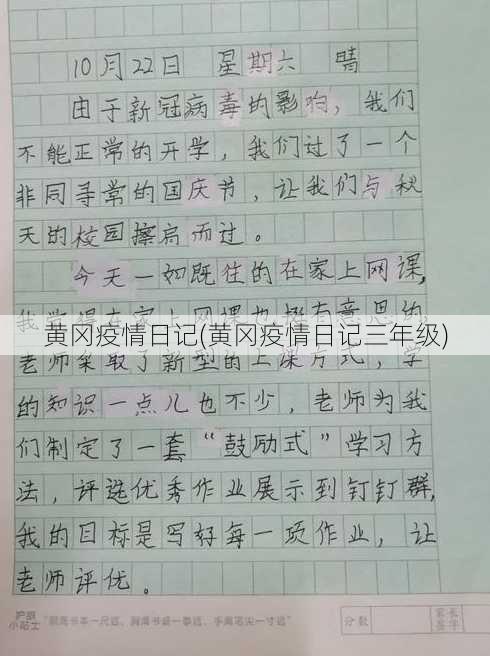 10月22日 星期六 晴
由于新冠病毒的影响，我们
不能正常的开学，我们过了一个
非同寻常的国庆节，让我们与秋
天的校园擦肩而过。
今天一如既往的在家上网课，
我觉得在家上网课也挺有意思的，
黄冈疫情日记(黄冈疫情日记三年级)
老师采取了新型的上课方式，学
的知识一点儿也不少，老师为我
们制定了一套“鼓励式”学习方
法，评选优秀作业展示到钉钉群，
我的目标是写好每一项作业，让
老师评优。
护眼
小贴士
“眼离书本一尺远、胸离书桌一拳远、手离笔尖一寸远”
分数
家长
签字